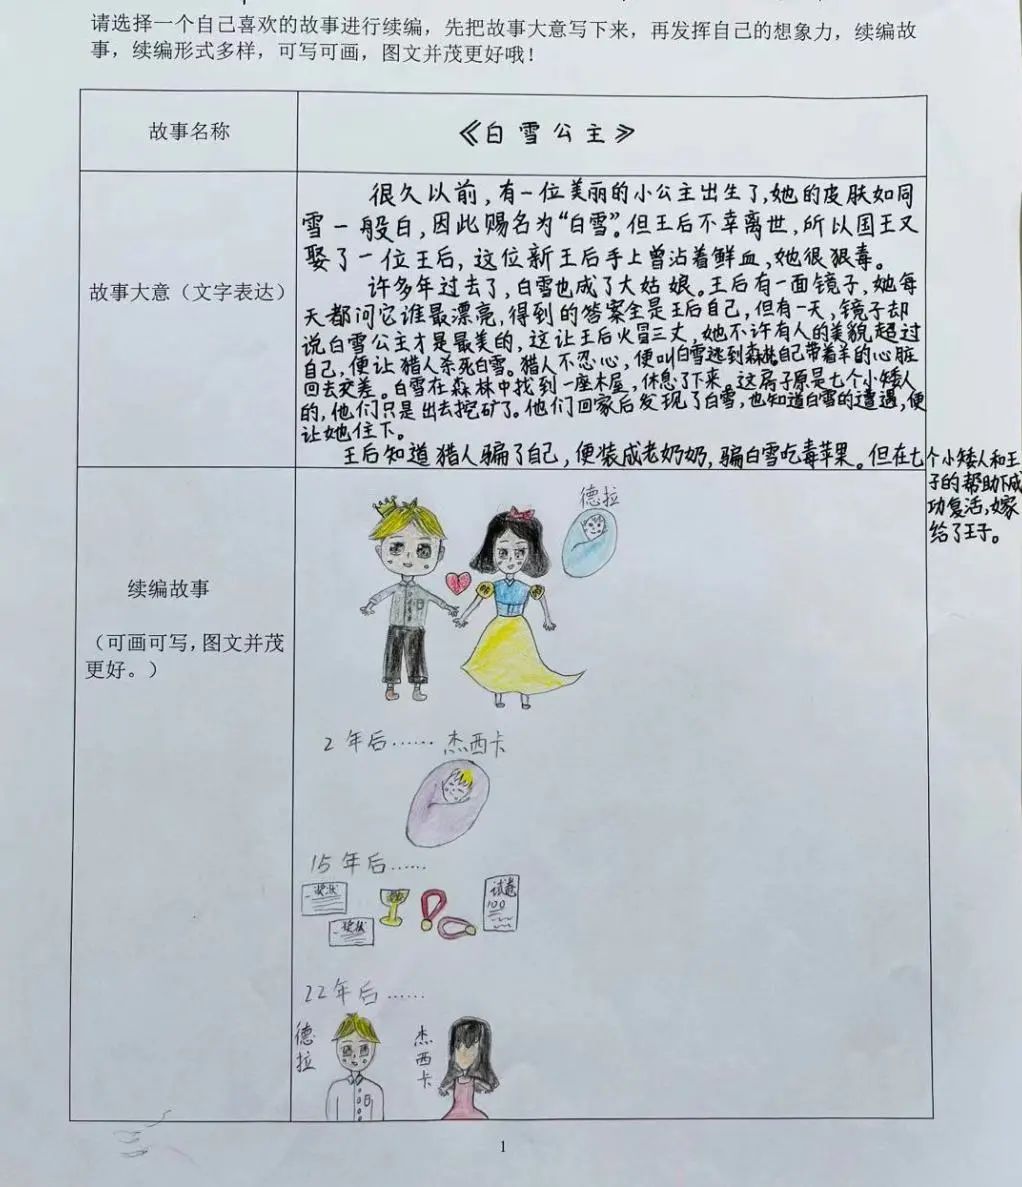 请选择一个自己喜欢的故事进行续编，先把故事大意写下来，再发挥自己的想象力，续编故
事，续编形式多样，可写可画，图文并茂更好哦！
故事名称
《白雪公主》
故事大意（文字表达）
很久以前，有一位美丽的小公主出生了，她的皮肤如同
雪一般白，因此赐名为“白雪”。但王后不幸离世，所以国王又
娶了一位王后，这位新王后手上曾沾着鲜血，她很狠毒。
许多年过去了，白雪也成了大姑娘。王后有一面镜子，她每
天都问它谁最漂亮，得到的答案全是王后自己，但有一天，镜子却
说白雪公主才是最美的，这让王后火冒三丈，她不许有人的美貌超过
自己，便让猎人杀死白雪。猎人不忍心，便叫白雪逃到森林自己带着羊的心脏
回去交差。白雪在森林中找到一座木屋，休息了下来。这房子原是七个小矮人
的，他们只是出去挖矿了。他们回家后发现了白雪，也知道白雪的遭遇，便
让她住下。
王后知道猎人骗了自己，便装成老奶奶，骗白雪吃毒苹果。但在七个小矮人和王
子的帮助下成
功复活，嫁
给了王子。
续编故事
（可画可写，图文并茂
更好。）
德拉
2年后…… 杰西卡
15年后……
奖状
奖状
试卷
100
22年后……
德拉
杰西卡
1